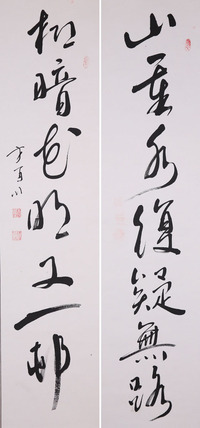 山重水復疑無路
柳暗花明又一邨